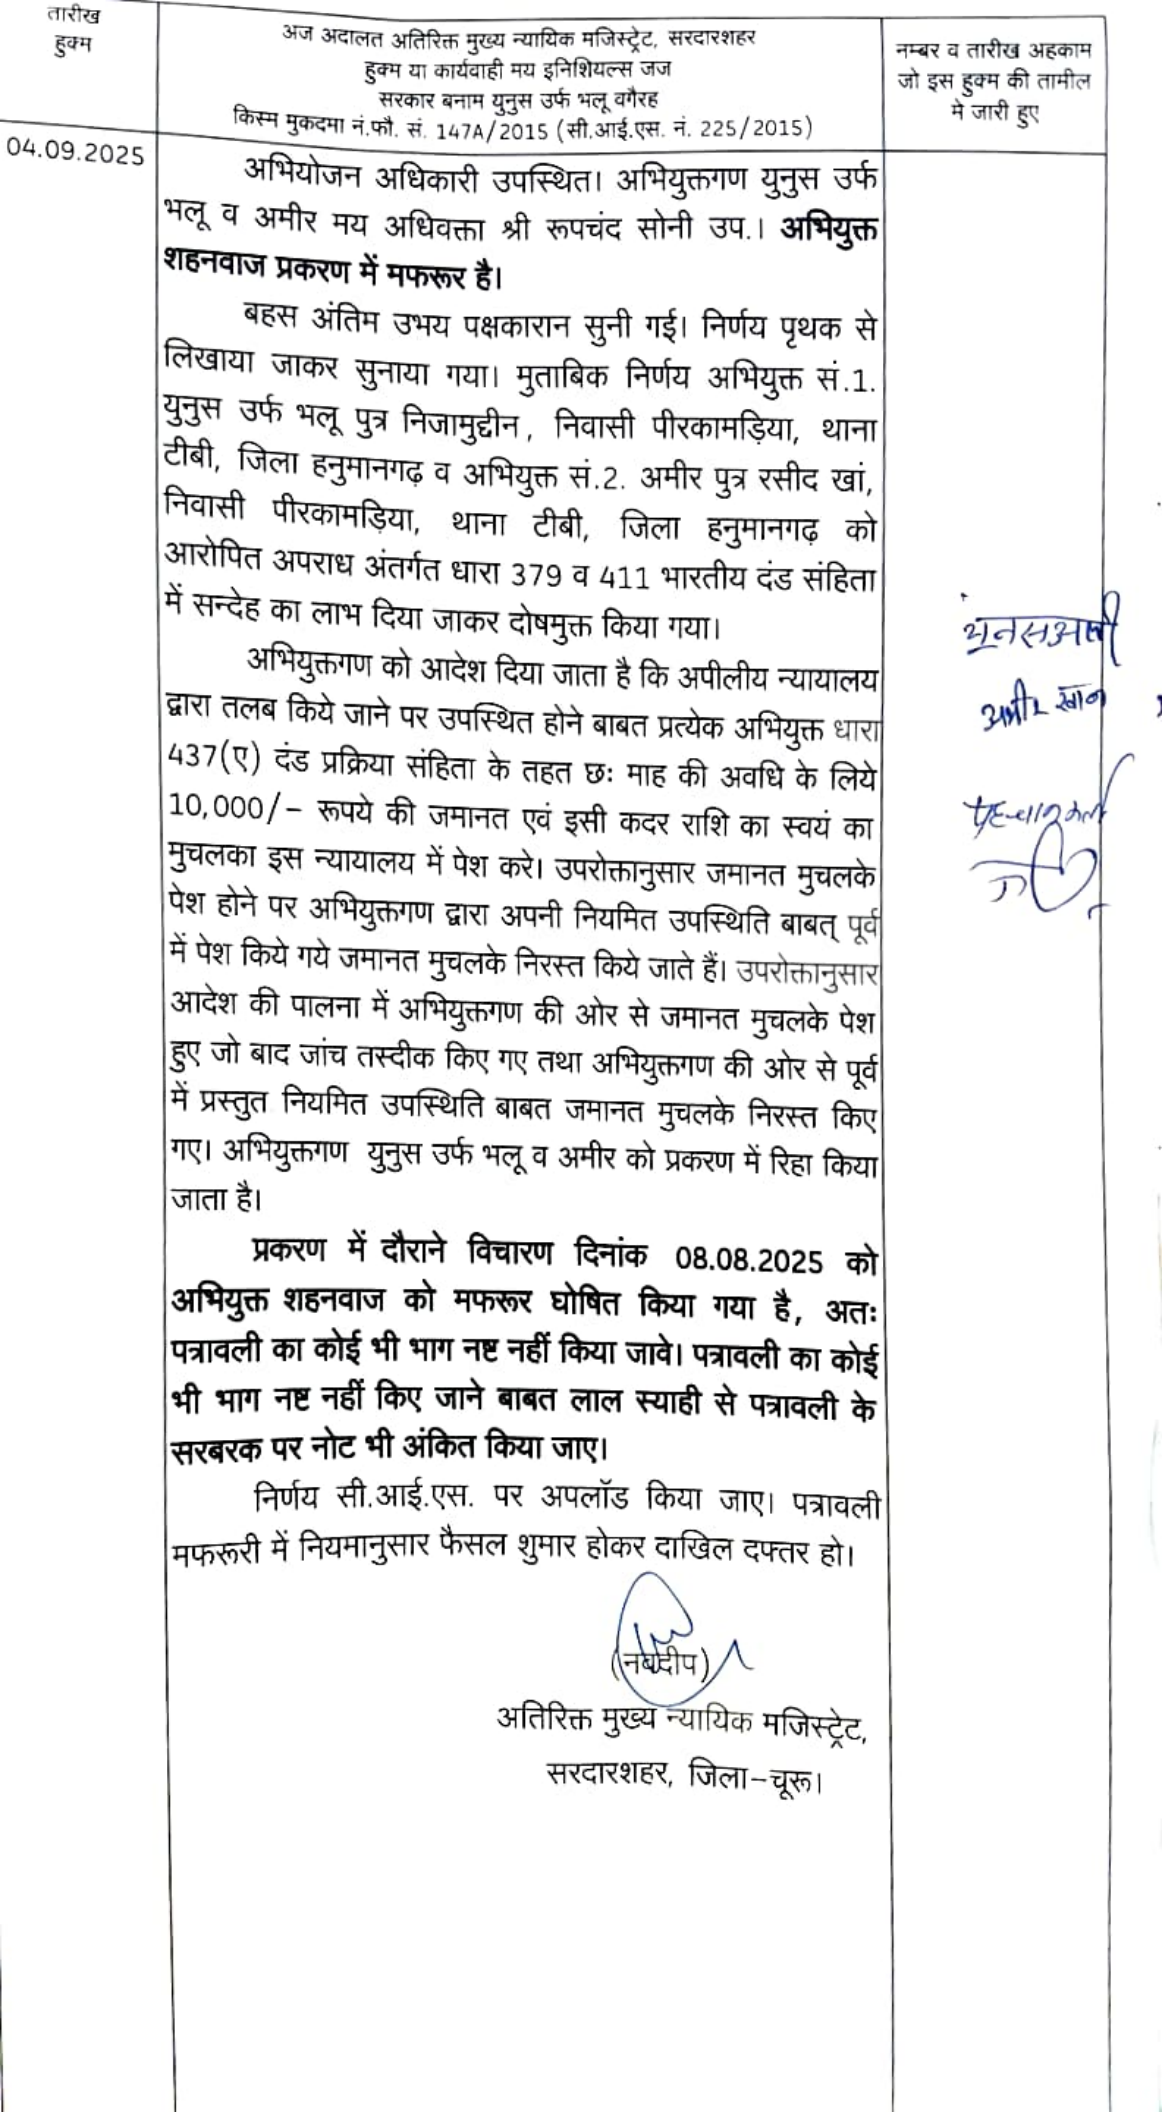 तारीख
हुक्म
अज अदालत अतिरिक्त मुख्य न्यायिक मजिस्ट्रेट, सरदारशहर
हुक्म या कार्यवाही मय इनिशियल्स जज
सरकार बनाम युनुस उर्फ भलू वगैरह
किस्म मुकदमा नं.फौ. सं. 147A/2015 (सी.आई.एस. नं. 225/2015)
नम्बर व तारीख अहकाम
जो इस हुक्म की तामील
मे जारी हुए
04.09.2025
अभियोजन अधिकारी उपस्थित। अभियुक्तगण युनुस उर्फ
भलू व अमीर मय अधिवक्ता श्री रूपचंद सोनी उप.। अभियुक्त
शहनवाज प्रकरण में मफरूर है।
बहस अंतिम उभय पक्षकारान सुनी गई। निर्णय पृथक से
लिखाया जाकर सुनाया गया। मुताबिक निर्णय अभियुक्त सं.1.
युनुस उर्फ भलू पुत्र निजामुद्दीन, निवासी पीरकामड़िया, थाना
टीबी, जिला हनुमानगढ़ व अभियुक्त सं.2. अमीर पुत्र रसीद खां,
निवासी पीरकामड़िया, थाना टीबी, जिला हनुमानगढ़ को
आरोपित अपराध अंतर्गत धारा 379 व 411 भारतीय दंड संहिता
में सन्देह का लाभ दिया जाकर दोषमुक्त किया गया।
अभियुक्तगण को आदेश दिया जाता है कि अपीलीय न्यायालय
द्वारा तलब किये जाने पर उपस्थित होने बाबत प्रत्येक अभियुक्त धारा
437(ए) दंड प्रक्रिया संहिता के तहत छः माह की अवधि के लिये
10,000/- रूपये की जमानत एवं इसी कदर राशि का स्वयं का
मुचलका इस न्यायालय में पेश करे। उपरोक्तानुसार जमानत मुचलके
पेश होने पर अभियुक्तगण द्वारा अपनी नियमित उपस्थिति बाबत् पूर्व
में पेश किये गये जमानत मुचलके निरस्त किये जाते हैं। उपरोक्तानुसार
आदेश की पालना में अभियुक्तगण की ओर से जमानत मुचलके पेश
हुए जो बाद जांच तस्दीक किए गए तथा अभियुक्तगण की ओर से पूर्व
में प्रस्तुत नियमित उपस्थिति बाबत जमानत मुचलके निरस्त किए
गए। अभियुक्तगण युनुस उर्फ भलू व अमीर को प्रकरण में रिहा किया
जाता है।
प्रकरण में दौराने विचारण दिनांक 08.08.2025 को
अभियुक्त शहनवाज को मफरूर घोषित किया गया है, अतः
पत्रावली का कोई भी भाग नष्ट नहीं किया जावे। पत्रावली का कोई
भी भाग नष्ट नहीं किए जाने बाबत लाल स्याही से पत्रावली के
सरबरक पर नोट भी अंकित किया जाए।
निर्णय सी.आई.एस. पर अपलॉड किया जाए। पत्रावली
मफरूरी में नियमानुसार फैसल शुमार होकर दाखिल दफ्तर हो।
(नवदीप)
अतिरिक्त मुख्य न्यायिक मजिस्ट्रेट,
सरदारशहर, जिला-चूरू।
अमीर खान